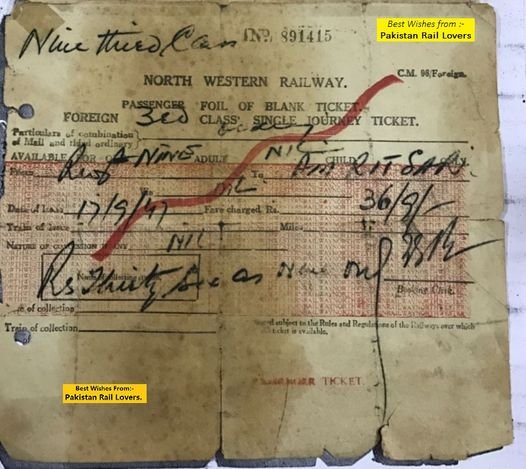 Nine third Class
Best Wishes from :-
Pakistan Rail Lovers
No. 891415
NORTH WESTERN RAILWAY.
C.M. 96/Foreign.
PASSENGER FOIL OF BLANK TICKET.
FOREIGN 3rd CLASS SINGLE JOURNEY TICKET.
Particulars of combination
of Mail and third ordinary
AVAILABLE FOR NINE ADULT NIL CHILD
From To AMRITSAR
Via NIL
Date of Issue 17/9/47 Fare charged Rs. 36/9/-
Train of Issue Miles
NATURE OF CONCESSION IF ANY NIL
Rs Thirty Six as Nine only
Booking Clerk.
Date of collection
Train of collection
Issued subject to the Rules and Regulations of the Railways over which
this ticket is available.
PASSENGER TICKET.
Best Wishes From:-
Pakistan Rail Lovers.